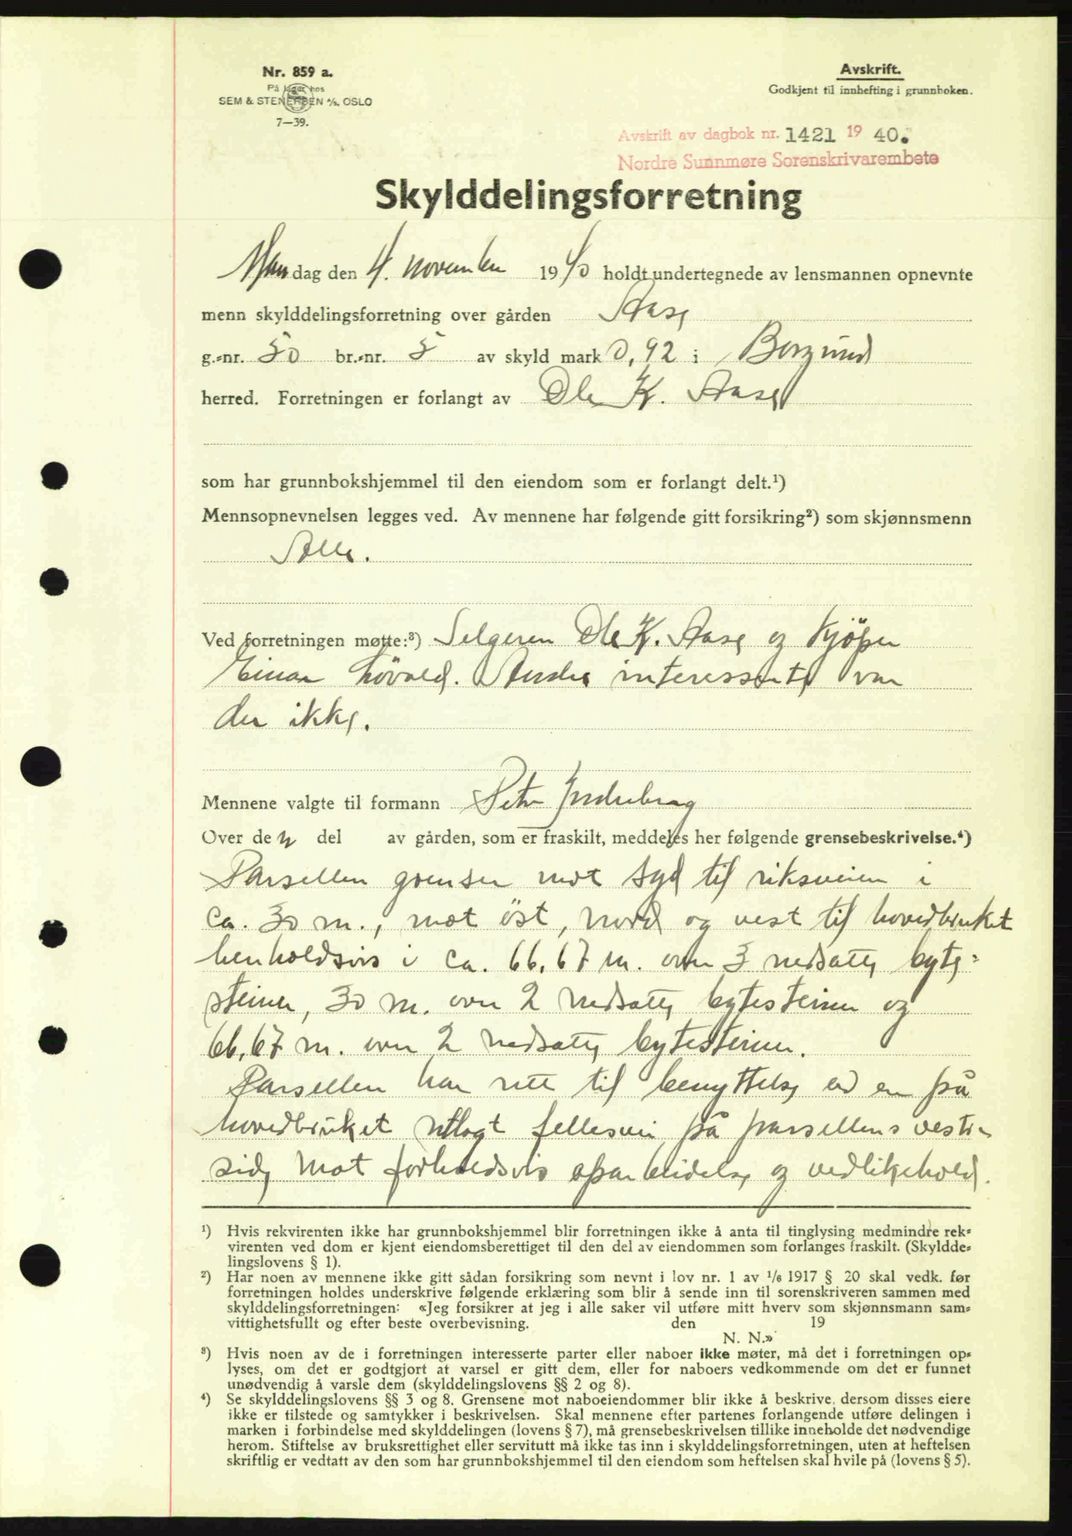 Nr. 859 a.
På lager hos
SEM & STENERSEN A/S, OSLO
7—39.
Avskrift.
Godkjent til innhefting i grunnboken.
Avskrift av dagbok nr. 1421 19 40.
Nordre Sunnmøre Sorenskrivarembete
Skylddelingsforretning
Mandag den 4. november 1940 holdt undertegnede av lensmannen opnevnte
menn skylddelingsforretning over gården Aase
g.-nr. 50 br.-nr. 5 av skyld mark 0,92 i Borgund
herred. Forretningen er forlangt av Ole K. Aase
som har grunnbokshjemmel til den eiendom som er forlangt delt.¹)
Mennsopnevnelsen legges ved. Av mennene har følgende gitt forsikring²) som skjønnsmenn
Alle.
Ved forretningen møtte:³) Selgeren Ole K. Aase og kjöper
Einar Lövold. Andre interessente var
der ikke.
Mennene valgte til formann Peter Indrebrag
Over den del av gården, som er fraskilt, meddeles her følgende grensebeskrivelse.⁴)
Parsellen grenser mot syd til riksveien i
ca. 30 m., mot öst, nord og vest til hovedbruket
henholdsvis i ca. 66,67 m. over 3 nedsatte byte-
steiner, 30 m. over 2 nedsatte bytesteiner og
66,67 m. over 2 nedsatte bytesteiner.
Parsellen har rett til benyttelse av en på
hovedbruket utlagt fellesvei på parsellens vestre
side mot forholdsvis oparbeidelse og vedlikehold.
¹) Hvis rekvirenten ikke har grunnbokshjemmel blir forretningen ikke å anta til tinglysing medmindre rek-
virenten ved dom er kjent eiendomsberettiget til den del av eiendommen som forlanges fraskilt. (Skyldde-
lingslovens § 1).
²) Har noen av mennene ikke gitt sådan forsikring som nevnt i lov nr. 1 av 1/6 1917 § 20 skal vedk. før
forretningen holdes underskrive følgende erklæring som blir å sende inn til sorenskriveren sammen med
skylddelingsforretningen: «Jeg forsikrer at jeg i alle saker vil utføre mitt hverv som skjønnsmann sam-
vittighetsfullt og efter beste overbevisning. den 19
N. N.»
³) Hvis noen av de i forretningen interesserte parter eller naboer ikke møter, må det i forretningen op-
lyses, om det er godtgjort at varsel er gitt dem, eller for naboers vedkommende om det er funnet
unødvendig å varsle dem (skylddelingslovens §§ 2 og 8).
⁴) Se skylddelingslovens §§ 3 og 8. Grensene mot naboeiendommer blir ikke å beskrive, dersom disses eiere
ikke er tilstede og samtykker i beskrivelsen. Skal mennene efter partenes forlangende utføre delingen i
marken i forbindelse med skylddelingen (lovens § 7), må grensebeskrivelsen tillike inneholde det nødvendige
herom. Stiftelse av bruksrettighet eller servitutt må ikke tas inn i skylddelingsforretningen, uten at heftelsen
skriftlig er vedtatt av den som har grunnbokshjemmel til den eiendom som heftelsen skal hvile på (lovens § 5).